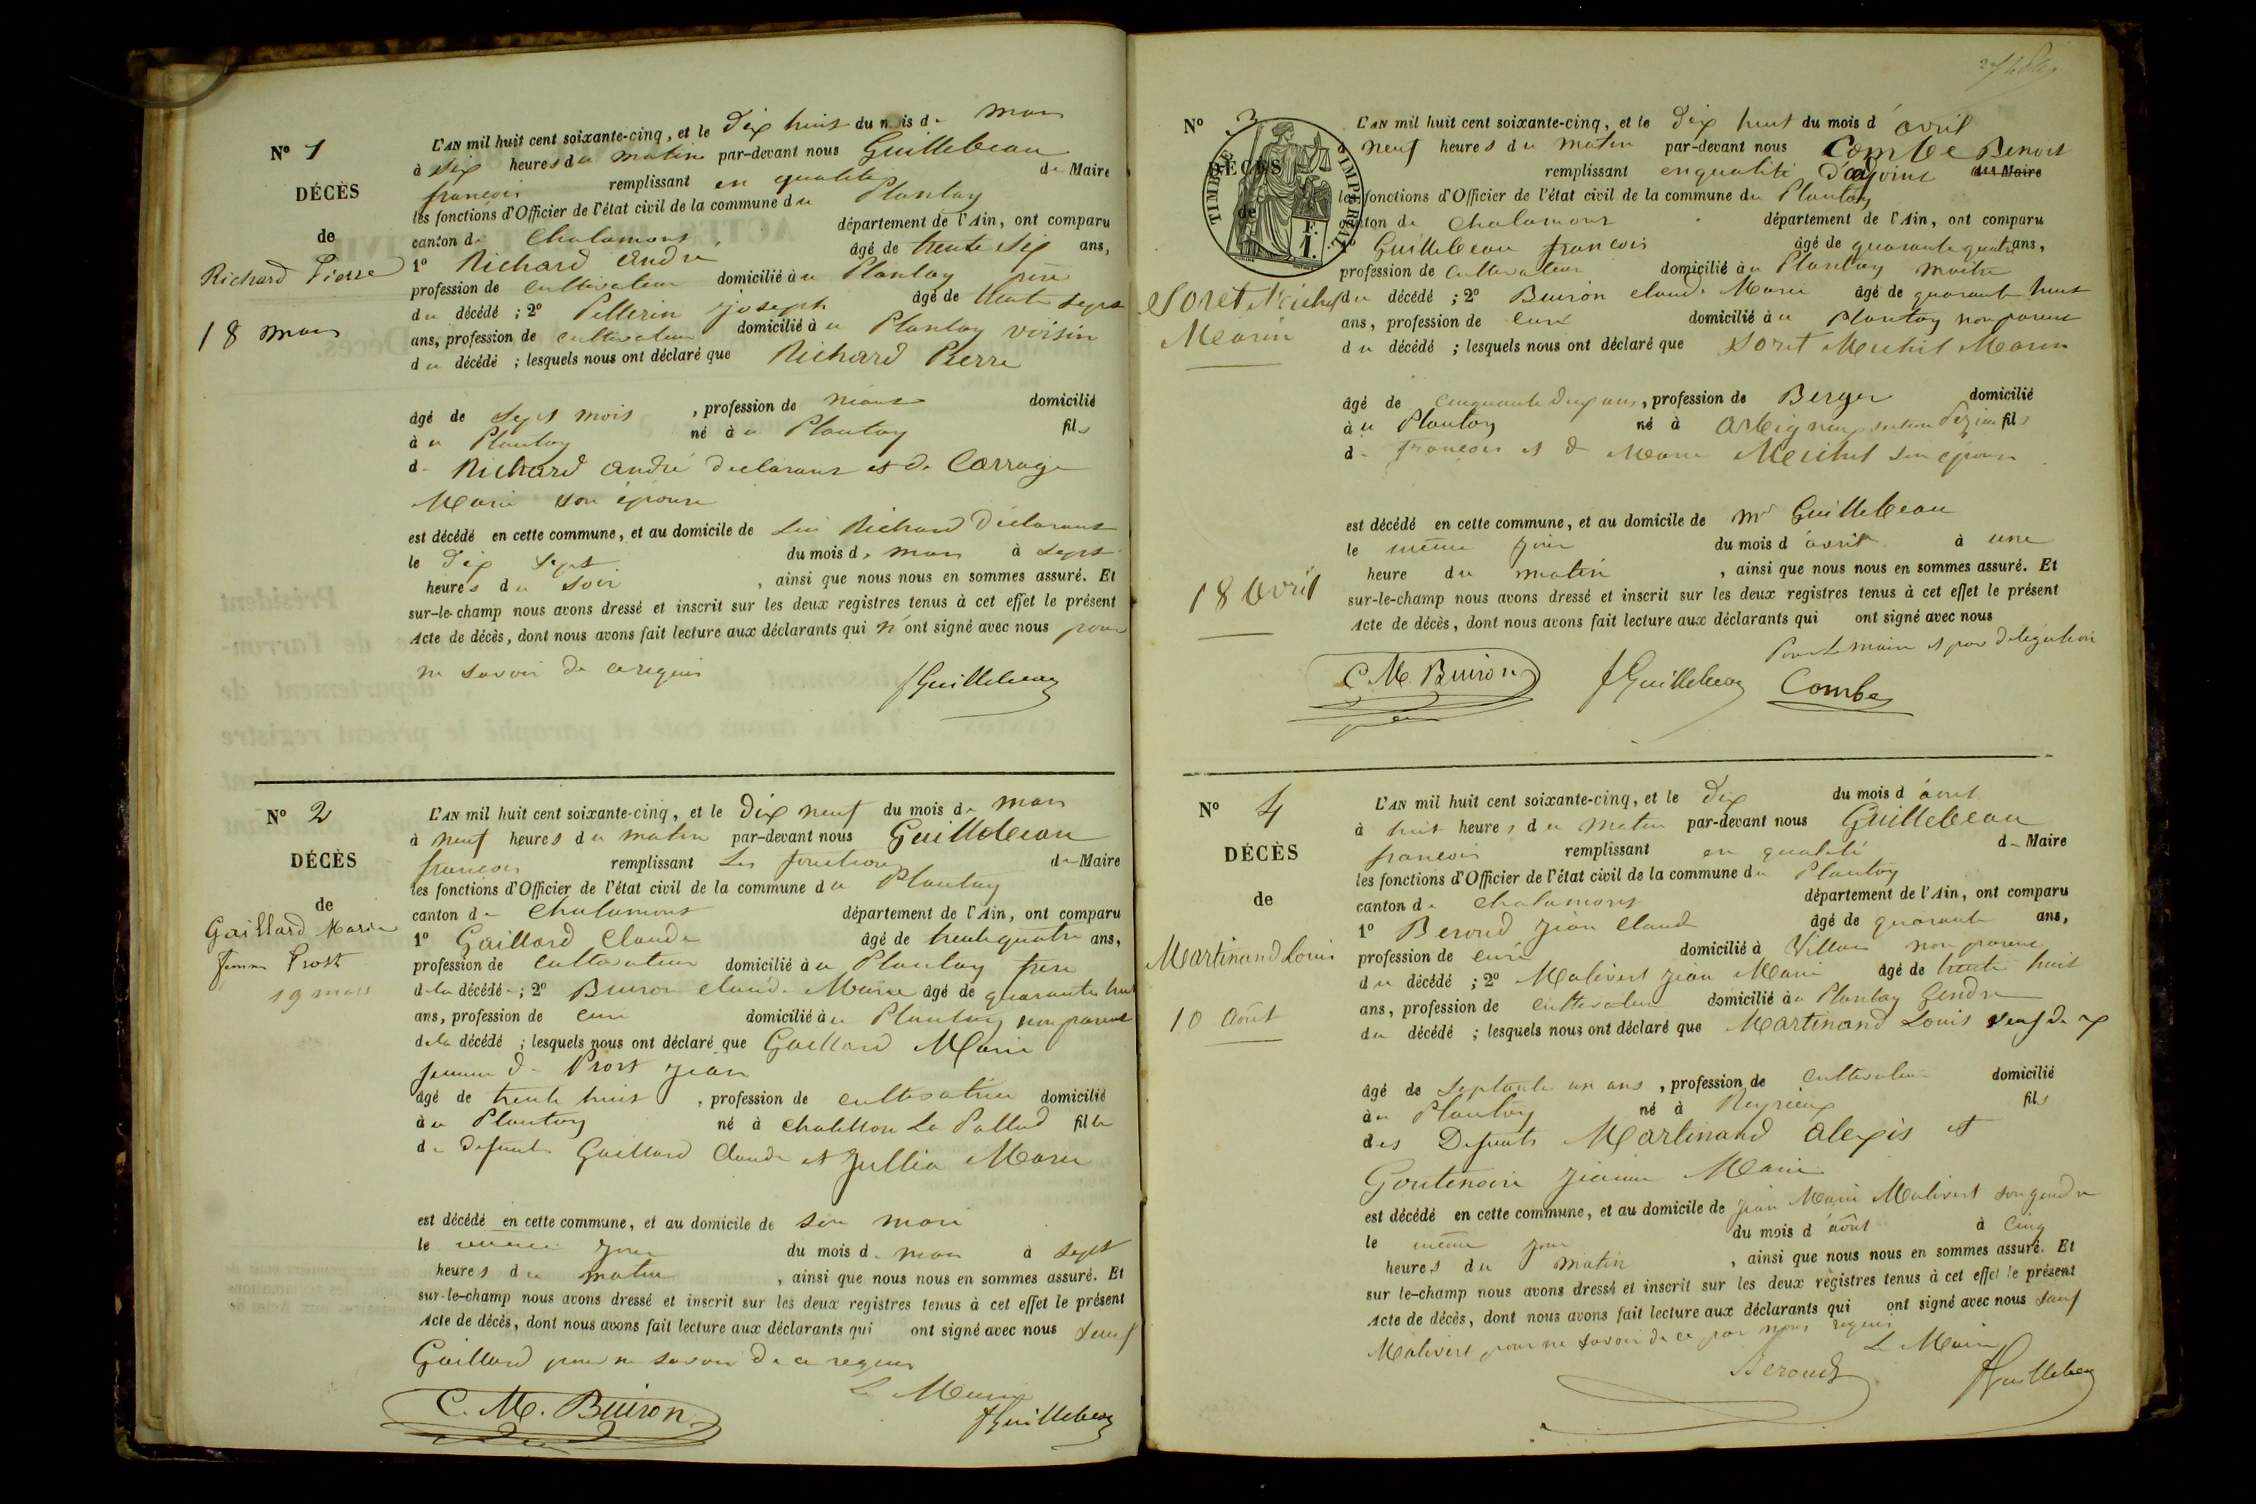 N° 1
DÉCÈS
de
Richard Pierre
18 mars
L'AN mil huit cent soixante-cinq, et le dix huit du mois de mars
à six heures du matin par-devant nous Guillebeau
francois remplissant en qualité de Maire
les fonctions d'Officier de l'état civil de la commune du Plantay
canton de Chalamont, département de l'Ain, ont comparu
1° Richard André âgé de trente six ans,
profession de cultivateur domicilié à u Plantay père
du décédé ; 2° Pellerin joseph âgé de trente sept
ans, profession de cultivateur domicilié à u Plantay voisin
du décédé ; lesquels nous ont déclaré que Richard Pierre
âgé de sept mois , profession de néant domicilié
à u Plantay né à u Plantay fils
de Richard andré declarant et de Carrage
Marie son épouse
est décédé en cette commune, et au domicile de lui Richard déclarant
le dix sept du mois de mars à sept
heures du soir , ainsi que nous nous en sommes assuré. Et
sur-le-champ nous avons dressé et inscrit sur les deux registres tenus à cet effet le présent
Acte de décès, dont nous avons fait lecture aux déclarants qui n'ont signé avec nous pour
ne savoir de ce requis
fGuillebeau
N° 2
DÉCÈS
de
Gaillard Marie
femme Prost
19 mars
L'AN mil huit cent soixante-cinq, et le dix neuf du mois de mars
à neuf heures du matin par-devant nous Guillebeau
francois remplissant les fonctions de Maire
les fonctions d'Officier de l'état civil de la commune du Plantay
canton de Chalamont département de l'Ain, ont comparu
1° Gaillard Claude âgé de trente quatre ans,
profession de cultivateur domicilié à u Plantay frere
de la décédée ; 2° Buiron claude Marie âgé de quarante huit
ans, profession de curé domicilié à u Plantay non parent
de la décédé ; lesquels nous ont déclaré que Gaillard Marie
femme de Prost jean
âgé de trente huit , profession de cultivatrice domicilié
à u Plantay né à chatillon La Pallud fille
de defunts Gaillard Claude et Jullia Marie
est décédé en cette commune, et au domicile de son mari
le même jour du mois de mars à sept
heures du matin , ainsi que nous nous en sommes assuré. Et
sur-le-champ nous avons dressé et inscrit sur les deux registres tenus à cet effet le présent
Acte de décès, dont nous avons fait lecture aux déclarants qui ont signé avec nous sauf
Gaillard pour ne savoir de ce requis
Le Maire
C. M. Buiron
fGuillebeau
N° 3
DÉCÈS
de
TIMBRE IMPÉRIAL
F.
1.
Soret Michel
Marin
18 avril
L'AN mil huit cent soixante-cinq, et le dix huit du mois d avril
neuf heures du matin par-devant nous Combe Benoit
remplissant en qualité d'adjoint du Maire
les fonctions d'Officier de l'état civil de la commune du Plantay
canton de Chalamont département de l'Ain, ont comparu
1° Guillebeau francois âgé de quarante quatre ans,
profession de cultivateur domicilié à u Plantay maitre
du décédé ; 2° Buiron claude Marie âgé de quarante huit
ans, profession de curé domicilié à u Plantay non parent
du décédé ; lesquels nous ont déclaré que Soret Michel Marin
âgé de cinquante deux ans, profession de Berger domicilié
à u Plantay né à fils
de francois et de Marie Michel son épouse
est décédé en cette commune, et au domicile de Mr Guillebeau
le même jour du mois d avril à une
heure du matin , ainsi que nous nous en sommes assuré. Et
sur-le-champ nous avons dressé et inscrit sur les deux registres tenus à cet effet le présent
Acte de décès, dont nous avons fait lecture aux déclarants qui ont signé avec nous
Pour le maire et par délégation
C M Buiron fGuillebeau Combe
N° 4
DÉCÈS
de
Martinand Louis
10 Août
L'AN mil huit cent soixante-cinq, et le dix du mois d août
à huit heures du matin par-devant nous Guillebeau
francois remplissant en qualité de Maire
les fonctions d'Officier de l'état civil de la commune du Plantay
canton de Chalamont département de l'Ain, ont comparu
1° Beroud jean Claude âgé de quarante ans,
profession de curé domicilié à Villars non parent
du décédé ; 2° Malivert jean Marie âgé de trente huit
ans, profession de cultivateur domicilié à u Plantay Gendre
du décédé ; lesquels nous ont déclaré que Martinand Louis veuf de
âgé de septante un ans , profession de cultivateur domicilié
à u Plantay né à Reyrieux fils
des Defunts Martinand alexis et
Goutenoire jeanne Marie
est décédé en cette commune, et au domicile de jean Marie Malivert son gendre
le même jour du mois d août à cinq
heures du matin , ainsi que nous nous en sommes assuré. Et
sur le-champ nous avons dressé et inscrit sur les deux registres tenus à cet effet le présent
Acte de décès, dont nous avons fait lecture aux déclarants qui ont signé avec nous sauf
Malivert pour ne savoir de ce par nous requis
Le Maire
Beroud
fGuillebeau